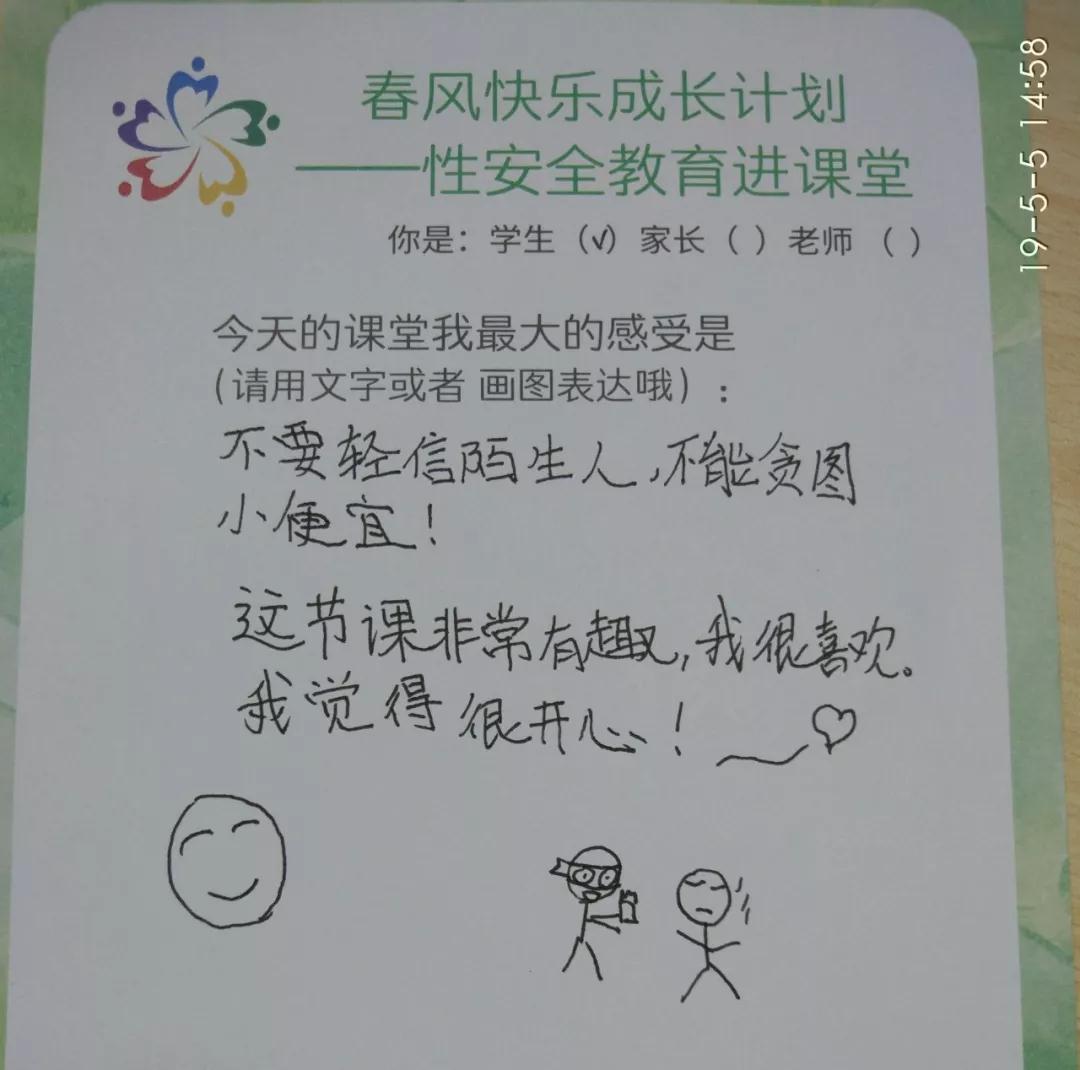 春风快乐成长计划
——性安全教育进课堂
你是：学生（√）家长（ ）老师 （ ）
今天的课堂我最大的感受是
（请用文字或者 画图表达哦）：
不要轻信陌生人，不能贪图
小便宜！
这节课非常有趣，我很喜欢。
我觉得很开心！
19-5-5 14:58